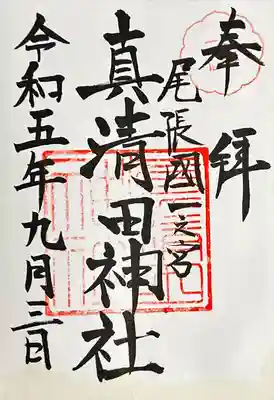 奉拝
尾張國一之宮
真清田神社
令和五年九月三日